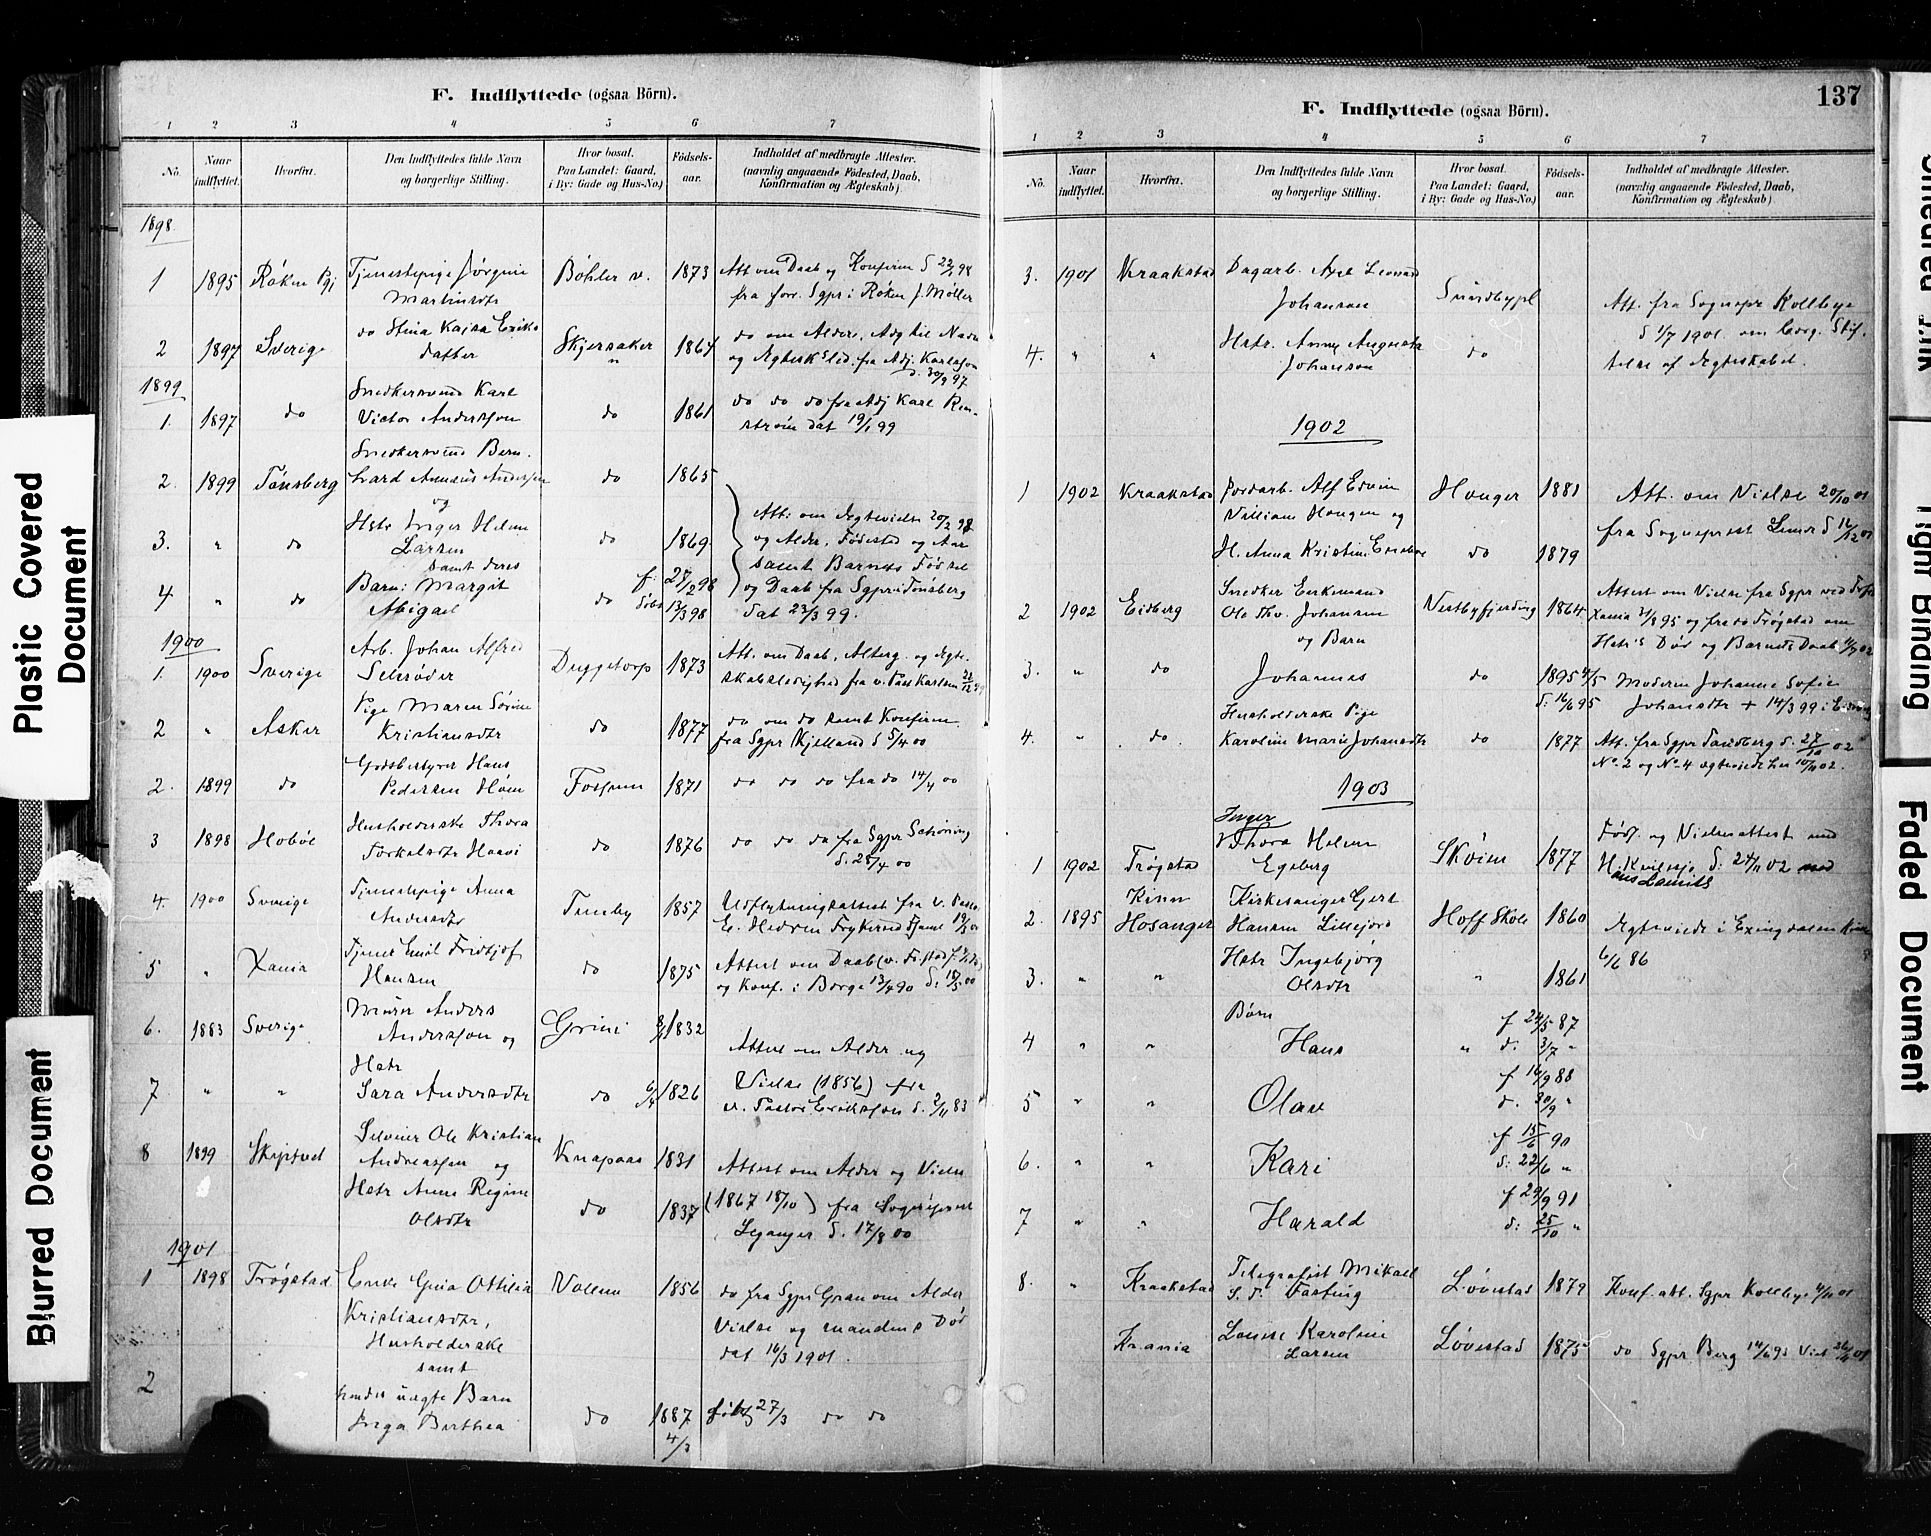 F. Indflyttede (ogsaa Börn).
1 2 3 4 5 6 7
No. Naar indflyttet. Hvorfra. Den Indflyttedes fulde Navn og borgerlige Stilling. Hvor bosat. Paa Landet: Gaard, i By: Gade og Hus-No.) Födsels-aar. Indholdet af medbragte Attester. (navnlig angaaende Födested, Daab, Konfirmation og Ægteskab)
1898
1 1895 Røken Pgj Tjenestepige Jørgine Bøhler v. 1873 Att om Daab og Konfirm
Martinsdtr fra forr. Sgpr i Røken J. Møller
do Stina Kajsa Eriks
2 1897 Sverige datter Skjersaker 1864 do om Alder, Adg til Nadv
og Ægteskbslid. fra Adj. Karlsson
d. 30/9 97
1899
Snedkersvend Karl
1. 1897 do Victor Andersson do 1861 do do do fra Adj Karl
strøm dat 19/1 99
Snedkersvend Bern.
2. 1899 Tønsberg Andersen do 1865
og
3. " do Hstr Inger Helene do 1869 Att. om Ægtevielse 20/2 98
Larsen og Alder, Fødested og Aar
samt deres samt Barnets Fødsel
4 " do Barn: Margit do f. 27/2 98 og Daab fra Sgpr i Tønsberg
Abigael døbt 13/3 98 dat 23/3 99.
1900
Arb. Johan Alfred
1. 1900 Sverige Schrøder Duggetorp 1873 Att. om Daab, og Ægte-
skabsledighed fra v. Past Karlsen
Pige Maren Sørine
2 " Asker Kristiansdtr do 1877 do om do samt Konfirm.
fra Sgpr Kjelland d 5/4 00
Godsbestyrer Hans
2. 1899 do Pedersen Høen Fossum 1871 do do do fra do 14/4 00
Husholderske Thora
3 1898 Hobøl Torkelsdtr do 1876 do do do fra Sgpr Schøning
d. 25/4 00
4. 1900 Sverige Tjenestepige Anna Tomby 1857 Udflytningsattest fra v. Pastor
Andersdtr
5 " Xania Tjener Emil Fridtjof do 1875 Attest om Daab
Hansen og Konf. i Borge 13/4 90
6. 1883 Sverige Murer Anders Grini 1832
Andersson og Attest om Alder og
7 " " Hstr Sara Andersdtr do 1826 Vielse (1856) fra
v. Pastor Eriksson d. 2/11 83
8 1899 Skiptvet Selveier Ole Kristian Knapaas 1831
Andreassen og Attest om Alder og Vielse
Hstr Anne Regine do 1837 (1867 18/10) fra Sogneprest
Olsdtr Leganger d. 17/8 00
1901
1 1898 Trøgstad Enke Gina Ottilia Vollene 1856 do fra Sgpr Gran om Alder
Kristiansdtr, Vielse og mandens Død
Husholderske dat 16/3 1901.
samt
2 hendes uægte Barn
Inga Berthea do 1887 4/3 døbt 27/3 do do
137
F. Indflyttede (ogsaa Börn).
1 2 3 4 5 6 7
No. Naar indflyttet. Hvorfra. Den Indflyttedes fulde Navn og borgerlige Stilling. Hvor bosat. Paa Landet: Gaard, i By: Gade og Hus-No.) Födsels-aar. Indholdet af medbragte Attester. (navnlig angaaende Födested, Daab, Konfirmation og Ægteskab)
3. 1901 Kraakstad Dagarb. Axel Leonard
Johanson Sundbypl Att. fra Sognepr Kollbye
d 1/7 1901 om borg. Stif-
4. " " Hstr. Anna Augusta do telse af Ægteskabet.
Johanson
1902
1 1902 Kraakstad Jordarb. Alf Edvin Honger 1881 Att. om Vielse 20/10 01
William Hongen og fra Sogneprest
H. Anna Kristine do 1879
2 1902 Eidberg Snedker Enkemand Vestbyfjerding 1864 Attest om Vielse fra Sgpr ved
Ole Thv. Johansen Xania 31/8 95 og fra do Trøgstad om
og Barn Hstr's Død og Barnets Daab
3. " do Johannes do 1895 4/5 Moderen Johanne Sofie
d: 16/6 95 Johansdtr + 14/3 99 i
Husholderske Pige
4. " do Karoline Marie Johansdtr do 1877 Att. fra Sgpr Sandberg d. 27/10 02
No 2 og No 4 ægteviede her 10/11 02.
1903
Inger
1 1902 Trøgstad Thora Helene Skøien 1877 Føds. og Vielsesattest med
Egeberg d: 24/11 02
Kinn Kirkesanger Gjert
2. 1895 Hosanger Hansen Lillejord Hoff Skole 1860 Ægteviede i Exingdalen
Hstr Ingebjørg 6/6 86
3. " " Olsdtr " 1861
Børn
4 " " Hans " f 24/5 87
d. 3/7 "
5 " " Olav f 16/9 88
d. 30/9 "
6. " " Kari f 15/6 90
d: 22/6 "
7 " " Harald f 29/9 91
d: 25/10 "
8. " Kraakstad Telegrafist Mikael Løvestad 1879 Konf. att. Sgpr Kollbye 4/11 01
S. F. Fasting
Kr.ania Louise Karoline Løvestad 1875 do Sgpr Berg
Larsen
Plastic Covered Document
Blurred Document
Tight Binding
Faded Document